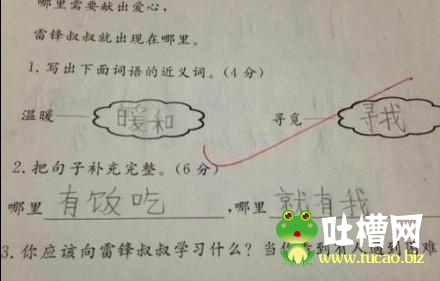 哪里需要献出爱心,
雷锋叔叔就出现在哪里。
1.写出下面词语的近义词。(4分)
温暖——暖和 寻觅——寻我
2.把句子补充完整。(6分)
哪里有饭吃,哪里就有我
3.你应该向雷锋叔叔学习什么?当你看到有人遇到困难
吐槽网
www.tucao.biz